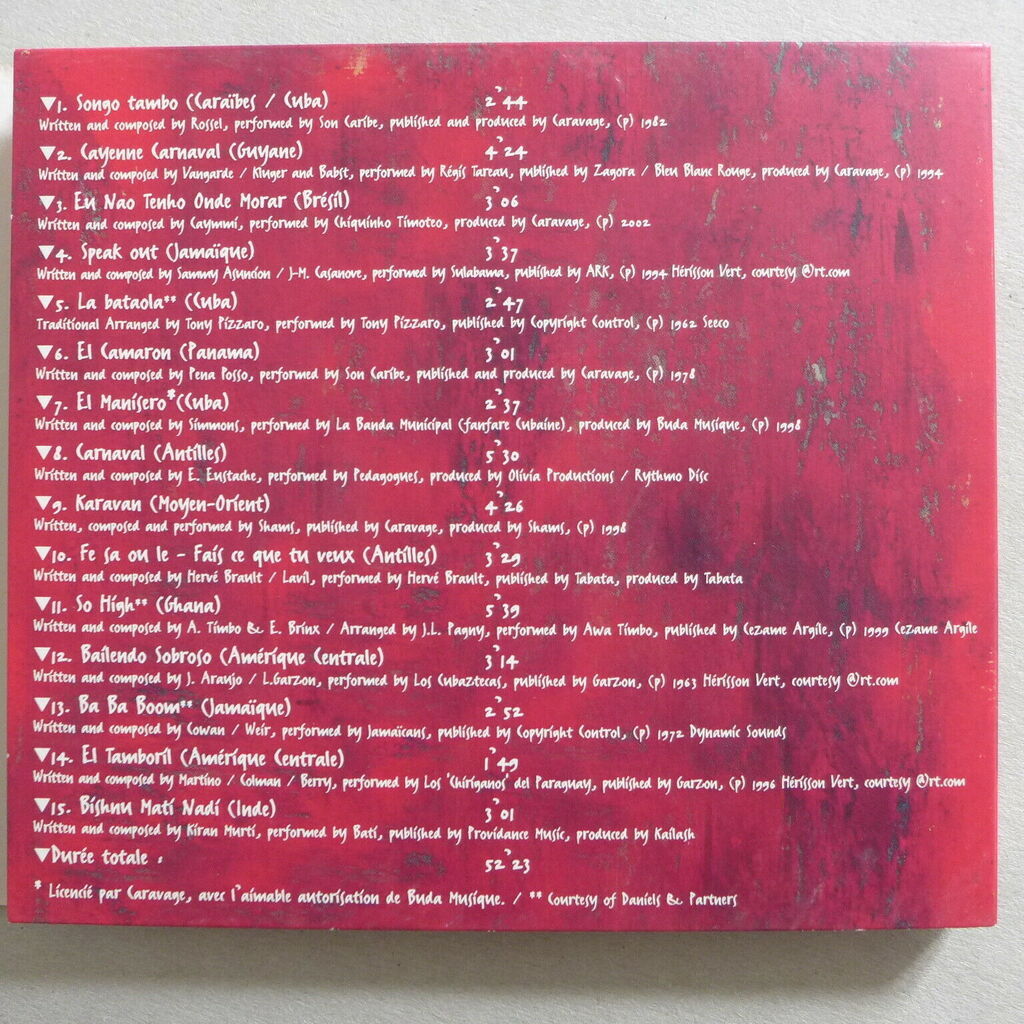 ▼1. Songo tambo (Caraïbes / Cuba) 2'44
Written and composed by Rossel, performed by Son Caribe, published and produced by Caravage, (p) 1982
▼2. Cayenne Carnaval (Guyane) 4'24
Written and composed by Vangarde / Kluger and Babst, performed by Régis Tareau, published by Zagora / Bleu Blanc Rouge, produced by Caravage, (p) 1994
▼3. Eu Nào Tenho Onde Morar (Brésil) 3'06
Written and composed by Caymmi, performed by Chiquinho Timoteo, produced by Caravage, (p) 2002
▼4. Speak out (Jamaïque) 3'37
Written and composed by Sammy Asuncion / J-M. Casanove, performed by Sulabama, published by ARK, (p) 1994 Hérisson Vert, courtesy @rt.com
▼5. La bataola** (Cuba) 2'47
Traditional Arranged by Tony Pizzaro, performed by Tony Pizzaro, published by Copyright Control, (p) 1962 Seeco
▼6. El Camaron (Panama) 3'01
Written and composed by Pena Posso, performed by Son Caribe, published and produced by Caravage, (p) 1978
▼7. El Manisero*(Cuba) 2'37
Written and composed by Simmons, performed by La Banda Municipal (fanfare cubaine), produced by Buda Musique, (p) 1998
▼8. Carnaval (Antilles) 5'30
Written and composed by E. Eustache, performed by Pedagogues, produced by Olivia Productions / Rythmo Disc
▼9. Karavan (Moyen-Orient) 4'26
Written, composed and performed by Shams, published by Caravage, produced by Shams, (p) 1998
▼10. Fe sa ou le - Fais ce que tu veux (Antilles) 3'29
Written and composed by Hervé Brault / Lavil, performed by Hervé Brault, published by Tabata, produced by Tabata
▼11. So High** (Ghana) 5'39
Written and composed by A. Timbo & E. Brinx / Arranged by J.L. Pagny, performed by Awa Timbo, published by Cezame Argile, (p) 1999 Cezame Argile
▼12. Bailendo Sobroso (Amérique Centrale) 3'14
Written and composed by J. Araujo / L.Garzon, performed by Los Cubaztecas, published by Garzon, (p) 1963 Hérisson Vert, courtesy @rt.com
▼13. Ba Ba Boom** (Jamaïque) 2'52
Written and composed by Cowan / Weir, performed by Jamaïcans, published by Copyright Control, (p) 1972 Dynamic Sounds
▼14. El Tamboril (Amérique Centrale) 1'49
Written and composed by Martino / Colman / Berry, performed by Los 'Chiriganos' del Paraguay, published by Garzon, (p) 1996 Hérisson Vert, courtesy @rt.com
▼15. Bishnu Mati Nadi (Inde) 3'01
Written and composed by Kiran Murti, performed by Bati, published by Providance Music, produced by Kailash
▼Durée totale : 52'23
* Licencié par Caravage, avec l'aimable autorisation de Buda Musique. / ** Courtesy of Daniels & Partners